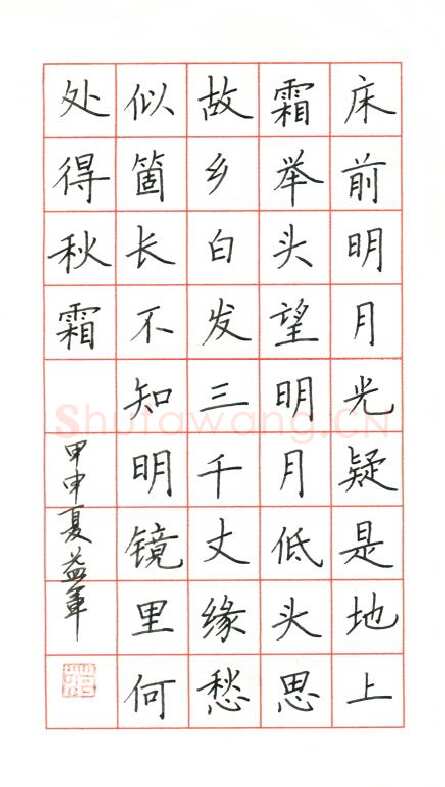 床前明月光疑是地上
霜举头望明月低头思
故乡白发三千丈缘愁
似箇长不知明镜里何
处得秋霜
甲申夏益军
Shufawang.CN